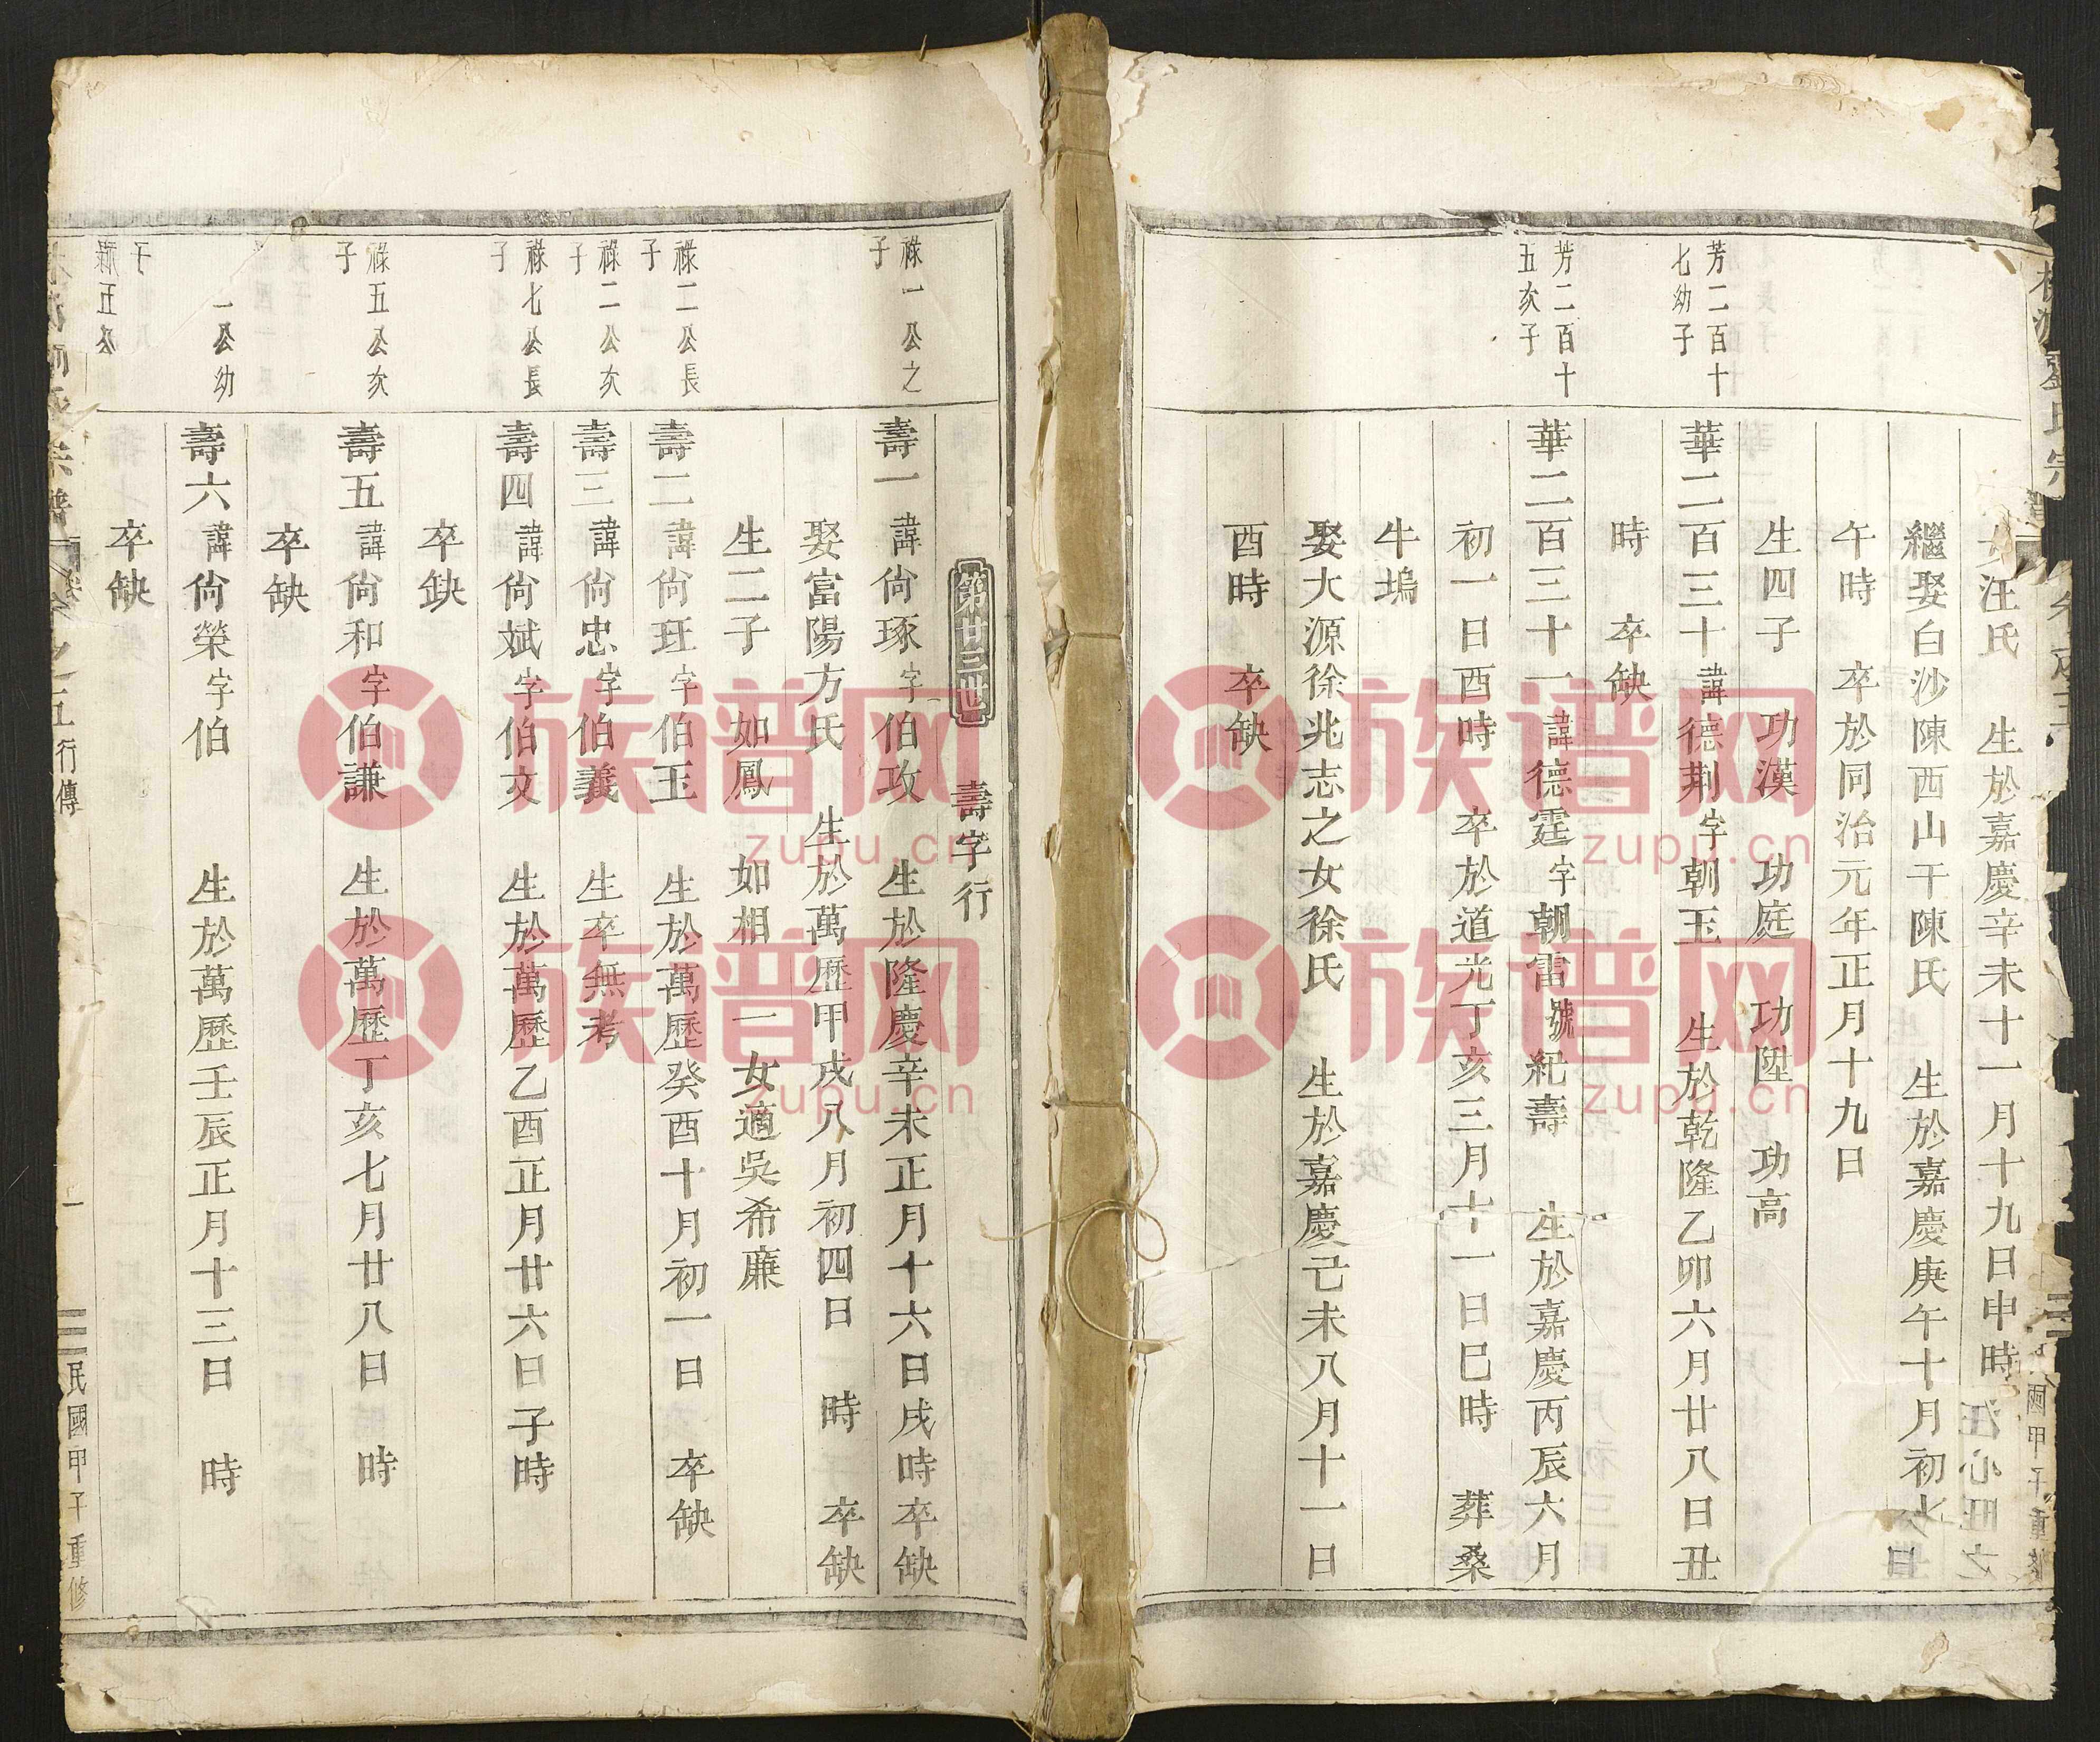 女汪氏　生於嘉慶辛未十一月十九日申時
繼娶白沙陳西山干陳氏　生於嘉慶庚午十月初七日
午時　卒於同治元年正月十九日
生四子　功漢　功庭　功陞　功高
芳二百十
七幼子
華二百三十諱德荆字朝玉　生於乾隆乙卯六月廿八日丑
時　卒缺
芳二百十
五次子
華二百三十一諱德霆字朝雷號紀壽　生於嘉慶丙辰六月
初一日酉時　卒於道光丁亥三月十一日巳時　葬桑
牛塢
娶大源徐兆志之女徐氏　生於嘉慶己未八月十一日
酉時　卒缺
第廿三世　壽字行
祿一公之
子
壽一諱尙琢字伯攻　生於隆慶辛未正月十六日戌時卒缺
娶富陽方氏　生於萬歷甲戌八月初四日　時　卒缺
生二子　如鳳　如相　一女適吳希亷
祿二公長
子
壽二諱尙玨字伯玉　生於萬歷癸酉十月初一日　卒缺
祿二公次
子
壽三諱尙忠字伯義　生卒無考
祿七公長
子
壽四諱尙斌字伯文　生於萬歷乙酉正月廿六日子時
卒缺
祿五公次
子
壽五諱尙和字伯謙　生於萬歷丁亥七月廿八日　時
卒缺
一公幼
子
壽六諱尙榮字伯　生於萬歷壬辰正月十三日　時
卒缺
五公
五行傳
民國甲子重修
族谱网
zupu.cn
族谱网
zupu.cn
族谱网
zupu.cn
族谱网
zupu.cn